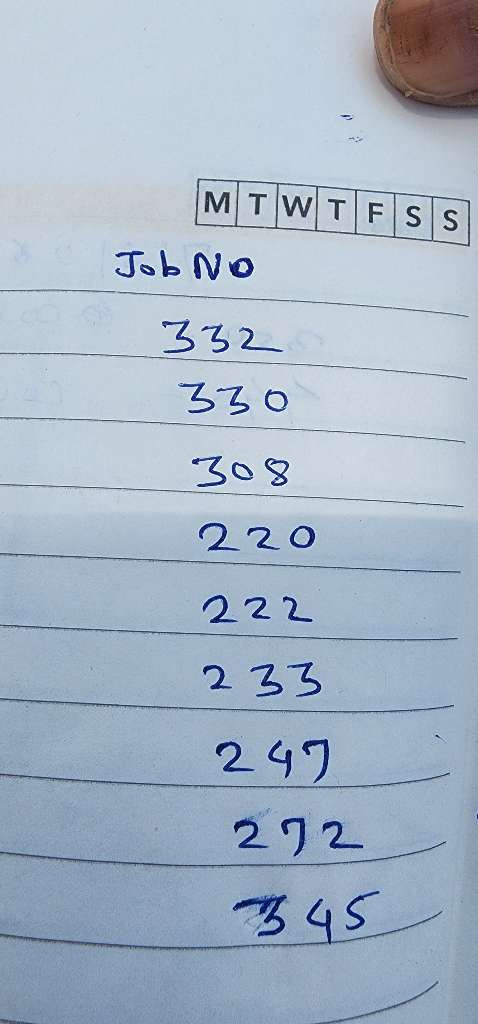 M T W T F S S
Job No
332
330
308
220
222
233
247
272
345